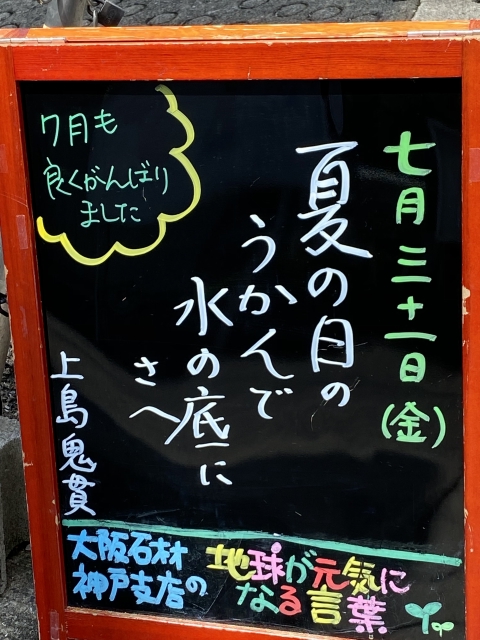 七月三十一日(金)
夏の日の
うかんで
水の底に
さへ
上島鬼貫
7月も
良くがんばり
ました
大阪石材
神戸支店の
地球が元気に
なる言葉